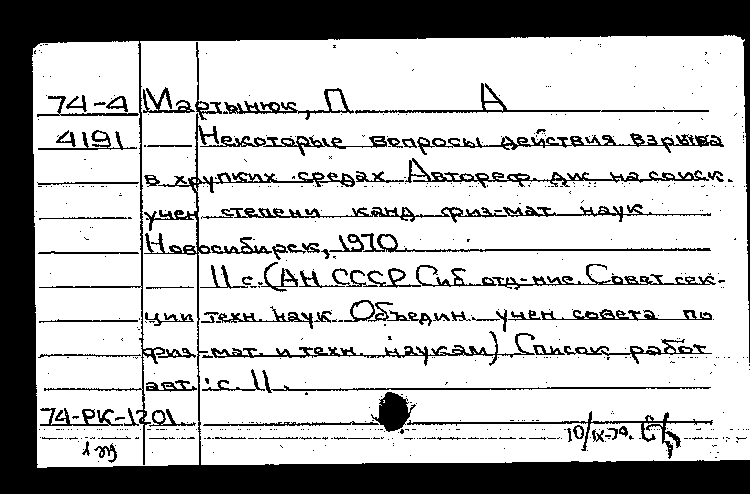 74-4 Мартынюк, П А
4191 Некоторые вопросы действия взрыва
в хрупких средах Автореф. дис на соиск.
учен степени канд физ-мат наук.
Новосибирск, 1970.
11 с. (АН СССР Сиб. отд-ние. Совет сек-
ции техн. наук Объедин. учен. совета по
физ-мат. и техн. наукам) Список работ
авт.: с. 11.
74-РК-1201
10/IX-74.